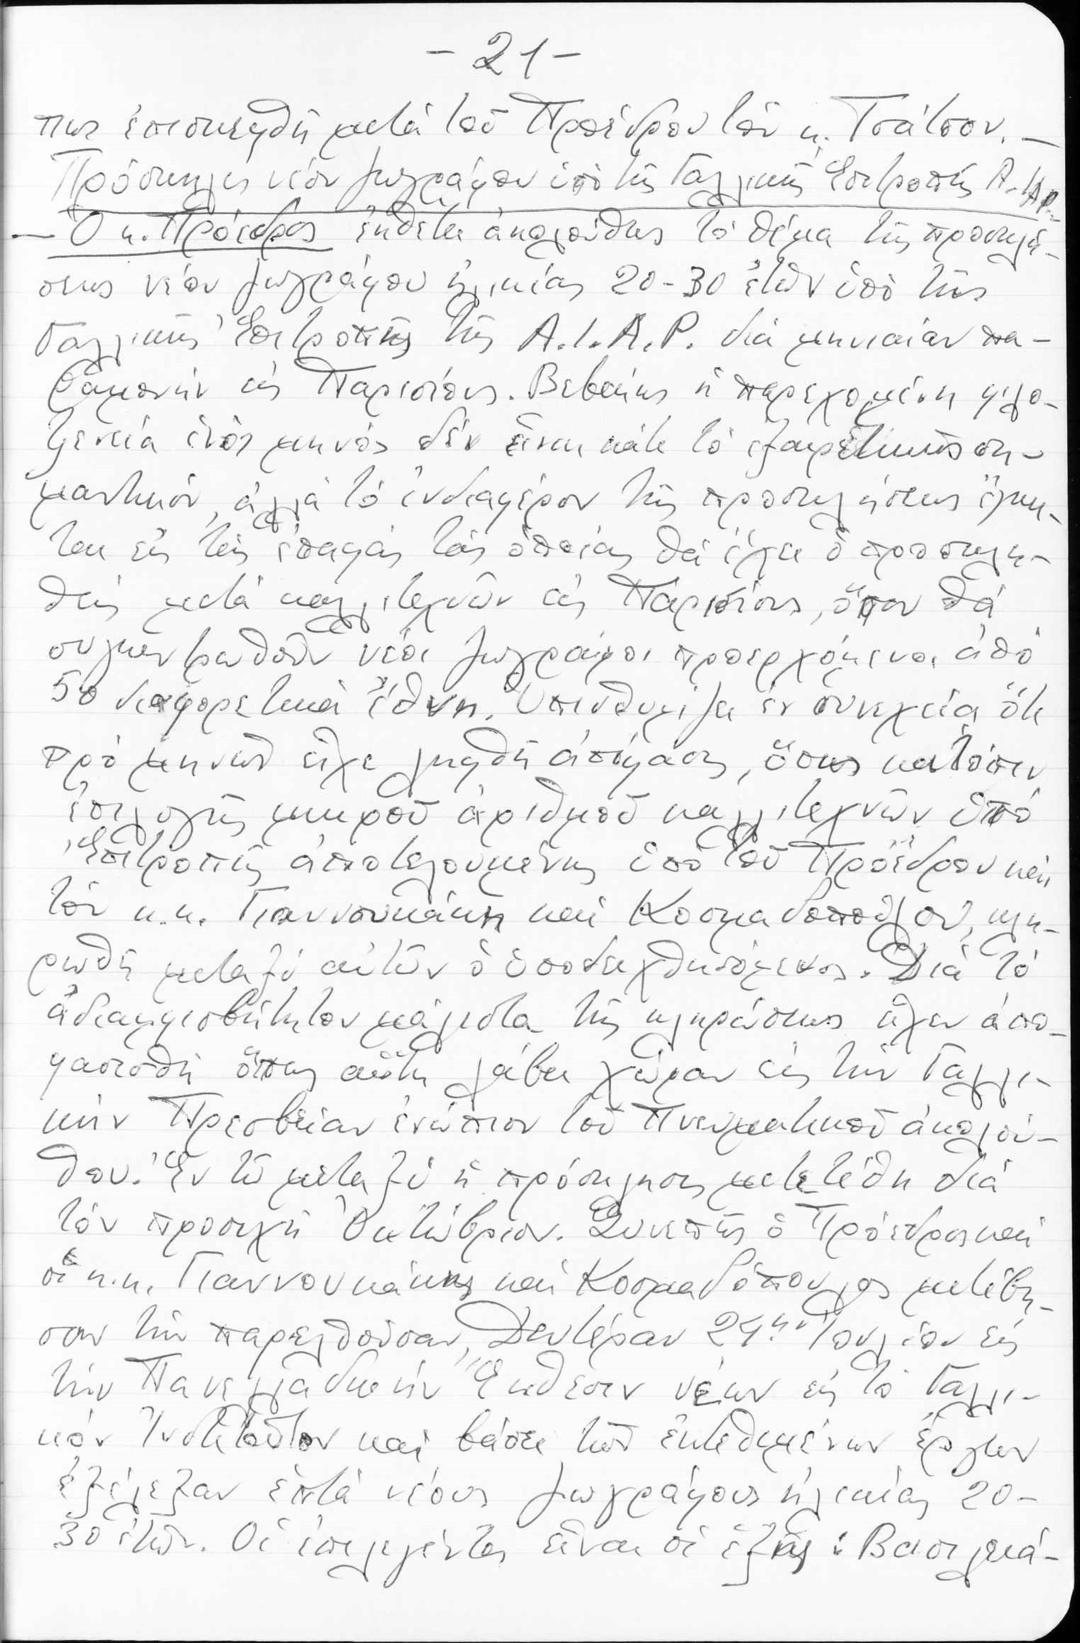 - 21 -
πως ἐπισκεφθῇ μετά τοῦ Προέδρου τόν κ. Τσάτσον. —
Πρόσκλησις νέου ζωγράφου ὑπό τῆς Γαλλικῆς Ἐπιτροπῆς A.I.A.P.
— Ὁ κ. Πρόεδρος ἐκθέτει ἀκολούθως τό θέμα τῆς προσκλή-
σεως νέου ζωγράφου ἡλικίας 20-30 ἐτῶν ὑπό τῆς
Γαλλικῆς Ἐπιτροπῆς τῆς A.I.A.P. διά μηνιαίαν πα-
ραμονήν εἰς Παρισίους. Βεβαίως ἡ παρεχομένη φιλο-
ξενεία ἑνός μηνός δέν εἶναι κάτι τό ἐξαιρετικῶς ση-
μαντικόν, ἀλλά τό ἐνδιαφέρον τῆς προσκλήσεως ἔγκει-
ται εἰς τάς ἐπαφάς τάς ὁποίας θά ἔχει ὁ προσκλη-
θείς μετά καλλιτεχνῶν εἰς Παρισίους, ὅπου θά
συγκεντρωθοῦν νέοι ζωγράφοι προερχόμενοι ἀπό
50 διαφορετικά ἔθνη. Ὑπενθυμίζει ἐν συνεχεία ὅτι
πρό μηνῶν εἶχε ληφθῆ ἀπόφασις, ὅπως κατόπιν
ἐπιλογῆς μικροῦ ἀριθμοῦ καλλιτεχνῶν ὑπό
Ἐπιτροπῆς ἀποτελουμένης ὑπό τοῦ Προέδρου καί
τῶν κ.κ. Γιαννουκάκη καί Κοσμαδοπούλου, κλη-
ρωθῆ μεταξύ αὐτῶν ὁ ὑποδειχθησόμενος. Διά τό
ἀδιαμφισβήτητον μάλιστα τῆς κληρώσεως εἶχεν ἀπο-
φασισθῆ ὅπως αὕτη λάβει χώραν εἰς τήν Γαλλι-
κήν Πρεσβείαν ἐνώπιον τοῦ Πνευματικοῦ ἀκολού-
θου. Ἐν τῶ μεταξύ ἡ πρόσκλησις μετετέθη διά
τόν προσεχῆ Ὀκτώβριον. Συνεπῶς ὁ Πρόεδρος καί
οἱ κ.κ. Γιαννουκάκης καί Κοσμαδόπουλος μετέβη-
σαν τήν παρελθοῦσαν Δευτέραν 24ην Ἰουλίου εἰς
τήν Πανελλαδικήν Ἔκθεσιν νέων εἰς τό Γαλλι-
κόν Ἰνστιτοῦτον καί βάσει τῶν ἐκτεθειμένων ἔργων
ἐξέλεξαν ἑπτά νέους ζωγράφους ἡλικίας 20-
30 ἐτῶν. Οἱ ἐπιλεγέντες εἶναι οἱ ἑξῆς : Βασιλειά-